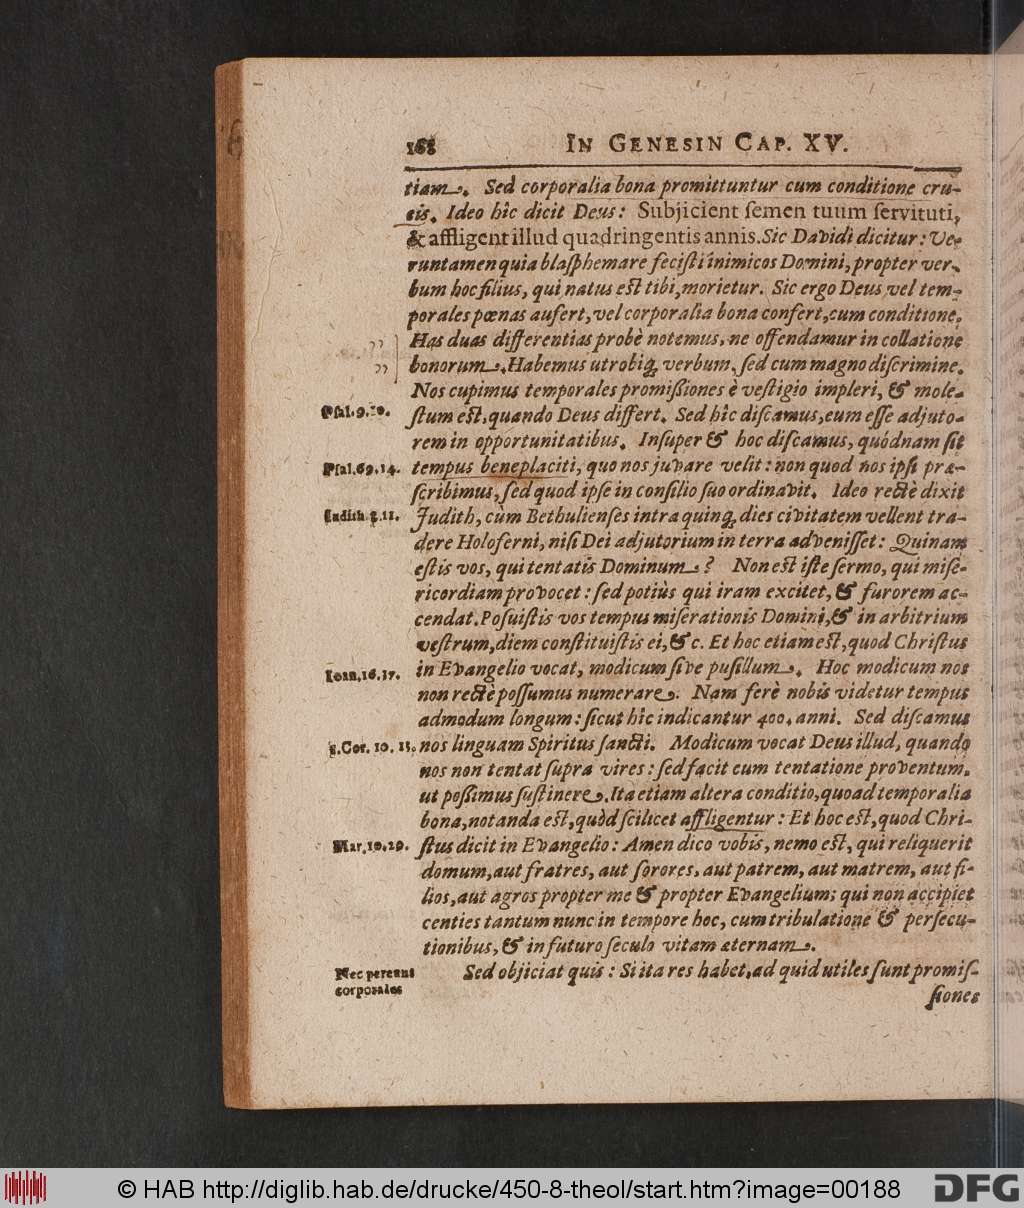 168 IN GENESIN CAP. XV.
tiam. Sed corporalia bona promittuntur cum conditione cru-
cis. Ideo hîc dicit Deus: Subjicient ſemen tuum ſervituti,
& affligent illud quadringentis annis. Sic Davidi dicitur: Ve-
runtamen quia blaſphemare feciſti inimicos Domini, propter ver-
bum hoc filius, qui natus eſt tibi, morietur. Sic ergo Deus vel tem-
porales pœnas aufert, vel corporalia bona confert, cum conditione.
Has duas differentias probè notemus, ne offendamur in collatione
bonorum. Habemus utrobiq; verbum, ſed cum magno diſcrimine.
Nos cupimus temporales promißiones è veſtigio impleri, & mole-
Pſal. 9. 10. ſtum eſt, quando Deus differt. Sed hîc diſcamus, eum eſſe adjuto-
rem in opportunitatibus. Inſuper & hoc diſcamus, quódnam ſit
Pſal. 69. 14. tempus beneplaciti, quo nos juvare velit: non quod nos ipſi præ-
ſcribimus, ſed quod ipſe in conſilio ſuo ordinavit. Ideo rectè dixit
Iudith. 8. 11. Judith, cùm Bethulienſes intra quinq; dies civitatem vellent tra-
dere Holoferni, niſi Dei adjutorium in terra advenisſet: Quinam
eſtis vos, qui tentatis Dominum? Non eſt iſte ſermo, qui miſe-
ricordiam provocet: ſed potiùs qui iram excitet, & furorem ac-
cendat. Poſuiſtis vos tempus miſerationis Domini, & in arbitrium
veſtrum, diem conſtituiſtis ei, & c. Et hoc etiam eſt, quod Chriſtus
Ioan. 16. 17. in Evangelio vocat, modicum ſive puſillum. Hoc modicum nos
non rectè poſſumus numerare. Nam ferè nobis videtur tempus
admodum longum: ſicut hîc indicantur 400. anni. Sed diſcamus
1. Cor. 10. 13. nos linguam Spiritus ſancti. Modicum vocat Deus illud, quando
nos non tentat ſupra vires: ſed facit cum tentatione proventum,
ut poſſimus ſuſtinere. Ita etiam altera conditio, quoad temporalia
bona, notanda eſt, quòd ſcilicet affligentur: Et hoc eſt, quod Chri-
Mar. 10. 29. ſtus dicit in Evangelio: Amen dico vobis, nemo eſt, qui reliquerit
domum, aut fratres, aut ſorores, aut patrem, aut matrem, aut fi-
lios, aut agros propter me & propter Evangelium; qui non accipiet
centies tantum nunc in tempore hoc, cum tribulatione & perſecu-
tionibus, & in futuro ſeculo vitam æternam.
Nec pereant Sed objiciat quis: Si ita res habet, ad quid utiles ſunt promiſ-
corporales ſiones
© HAB http://diglib.hab.de/drucke/450-8-theol/start.htm?image=00188 DFG